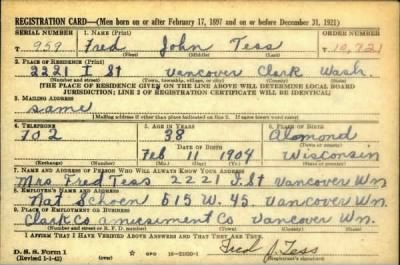 REGISTRATION CARD—(Men born on or after February 17, 1897 and on or before December 31, 1921)
SERIAL NUMBER 1. NAME (Print) ORDER NUMBER
T 959 Fred John Tess T 10,721
2. PLACE OF RESIDENCE (Print)
2221 I St Vancover Clark Wash.
(Number and street) (Town, township, village, or city) (County) (State)
[THE PLACE OF RESIDENCE GIVEN ON THE LINE ABOVE WILL DETERMINE LOCAL BOARD
JURISDICTION; LINE 2 OF REGISTRATION CERTIFICATE WILL BE IDENTICAL]
3. MAILING ADDRESS
same
[Mailing address if other than place indicated on line 2. If same insert word same]
4. TELEPHONE 5. AGE IN YEARS 6. PLACE OF BIRTH
702 38 Almond
DATE OF BIRTH (Town or county)
Feb 11 1904 Wisconsin
(Exchange) (Number) (Mo.) (Day) (Yr.) (State or country)
7. NAME AND ADDRESS OF PERSON WHO WILL ALWAYS KNOW YOUR ADDRESS
Mrs Fred Tess 2221 I. St Vancover Wn
8. EMPLOYER'S NAME AND ADDRESS
Nat Schoen 515 W. 45. Vancover Wn
9. PLACE OF EMPLOYMENT OR BUSINESS
Clark Co amusement Co Vancover Wn.
(Number and street or R. F. D. number) (Town) (County) (State)
I AFFIRM THAT I HAVE VERIFIED ABOVE ANSWERS AND THAT THEY ARE TRUE.
D. S. S. Form 1
(Revised 1-1-42) (over) GPO 16—21630-1 Fred J. Tess
(Registrant's signature)